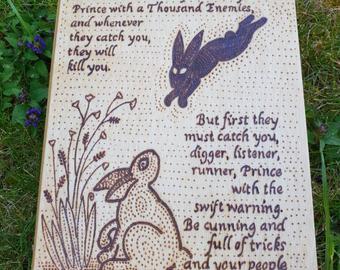 Prince with a Thousand Enemies,
and whenever
they catch you,
they will
kill you.
But first they
must catch you,
digger, listener,
runner, Prince
with the
swift warning.
Be cunning and
full of tricks
and your people